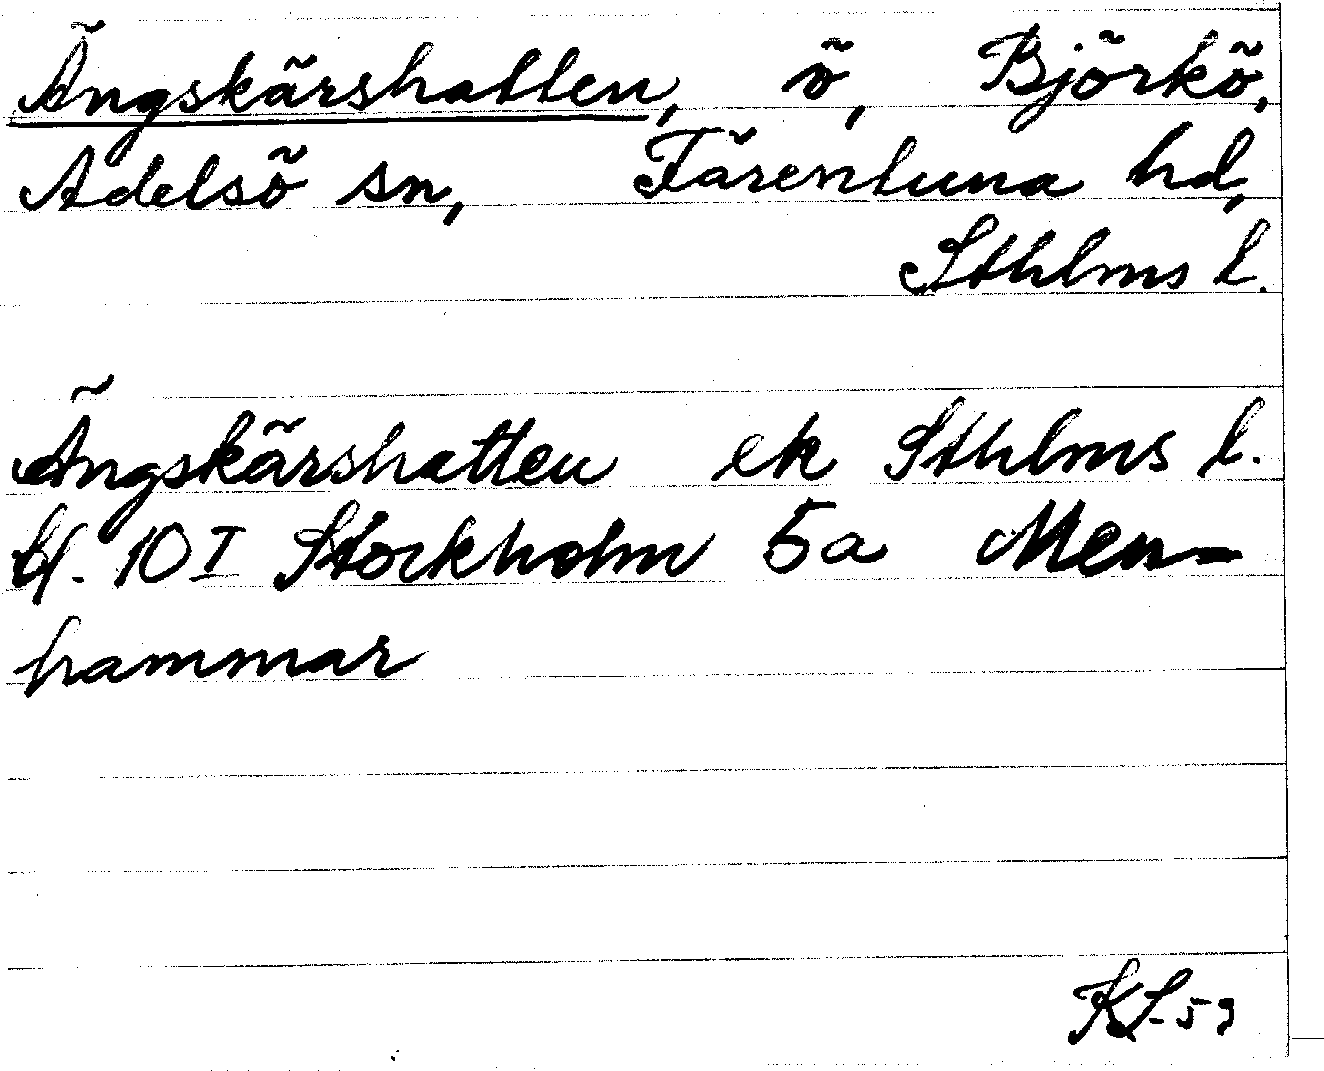 Ängskärshatten, ö, Björkö,
Adelsö sn, Färentuna hd,
Sthlms l.
Ängskärshatten ek Sthlms l.
bl. 10 I Stockholm 5a Men-
hammar
KL-59